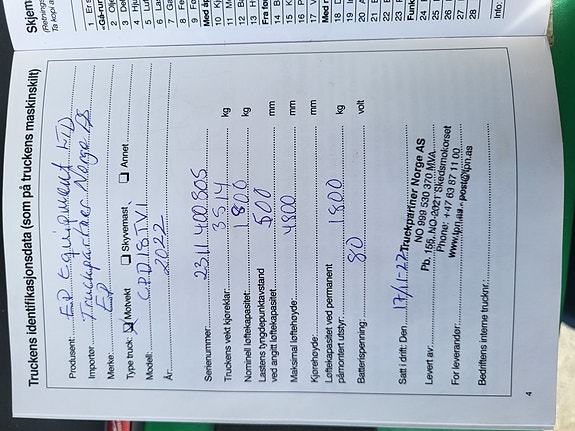 Truckens identifikasjonsdata (som på truckens maskinskilt)
Produsent: EP Equipment LTD
Importør Truckpartner Norge AS
Merke: EP
Type truck: Motvekt Skyvemast Annet
Modell: CPD18TV1
År: 2022
Serienummer: 2311400805
Truckens vekt kjøreklar: 3514 kg
Nominell løftekapasitet: 1800 kg
Lastens tyngdepunktavstand
ved angitt løftekapasitet 500 mm
Maksimal løftehøyde: 4800 mm
Kjørehøyde: mm
Løftekapasitet ved permanent
påmontert utstyr: 1800 kg
Batterispenning: 80 volt
Satt i drift: Den 17/11-22
Levert av: Truckpartner Norge AS
NO 999 530 370 MVA
Pb. 156, NO-2021 Skedsmokorset
Phone: +47 63 87 11 00
For leverandør: www.tpn.as - post@tpn.as
Bedriftens interne trucknr.:
4
Skjem
(Retnings
Ta kopi a
Info: